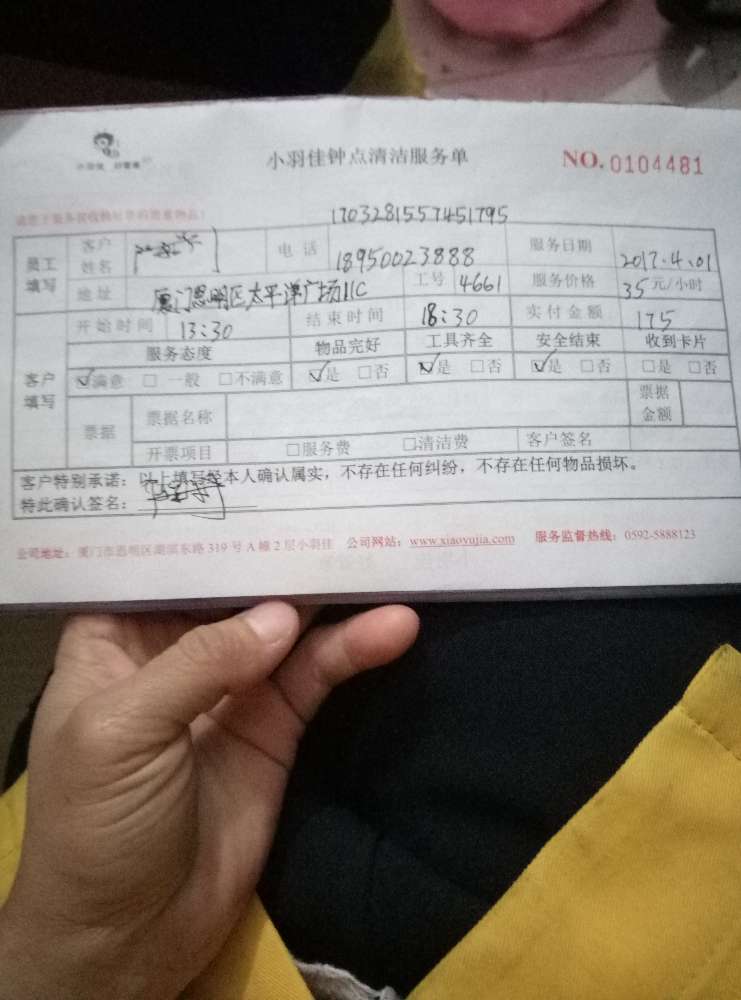 小羽佳 好管家
小羽佳钟点清洁服务单
NO.0104481
1703281557451795
员工填写 客户姓名 电话 18950023888 服务日期 2017.4.01
地址 厦门思明区太平洋广场11C 工号 4661 服务价格 35元/小时
客户填写 开始时间 13:30 结束时间 18:30 实付金额 175
服务态度 物品完好 工具齐全 安全结束 收到卡片
☑满意 □一般 □不满意 ☑是 □否 ☑是 □否 ☑是 □否 □是 □否
票据 票据名称 票据金额
开票项目 □服务费 □清洁费 客户签名
客户特别承诺：以上填写经本人确认属实，不存在任何纠纷，不存在任何物品损坏。
特此确认签名：
公司地址：厦门市思明区湖滨东路319号A幢2层小羽佳 公司网站：www.xiaoyujia.com 服务监督热线：0592-5888123